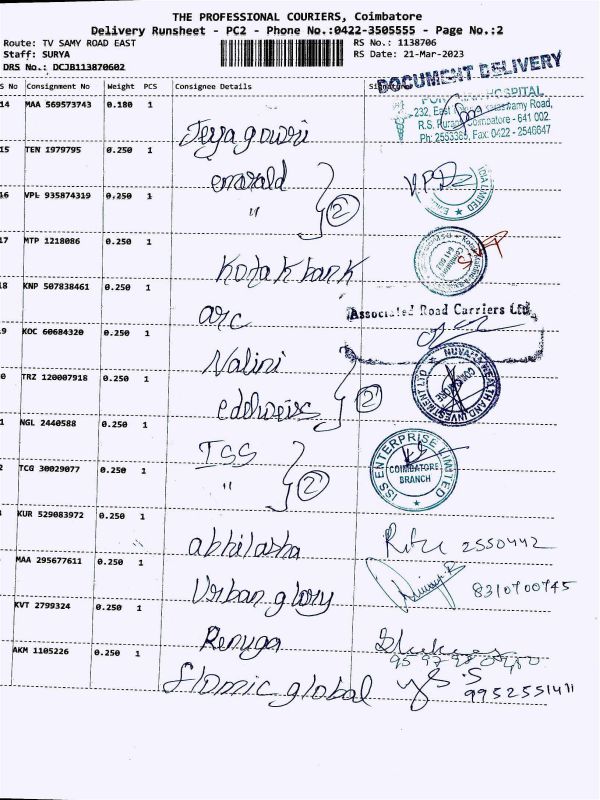 THE PROFESSIONAL COURIERS, Coimbatore
Delivery Runsheet - PC2 - Phone No.:0422-3505555 - Page No.:2
Route: TV SAMY ROAD EAST RS No.: 1138706
Staff: SURYA RS Date: 21-Mar-2023
DRS No.: DCJB113870602
S No Consignment No Weight PCS Consignee Details
DOCUMENT DELIVERY
HOSPITAL
14 MAA 569573743 0.180 1
232, East Swamy Road,
R.S. Puram, Coimbatore - 641 002.
Ph: 2553385, Fax: 0422 - 2546647
Jeyagowri
15 TEN 1979795 0.250 1
emarald
16 VPL 935874319 0.250 1
" 2 LIMITED
17 MTP 1218086 0.250 1
Kotak bank
18 KNP 507838461 0.250 1
arc Associated Road Carriers Ltd.
9 KOC 60684320 0.250 1
Nalini
0 TRZ 120007918 0.250 1
edelweiss 2 NUVAMA WEALTH AND INVESTMENT LTD
1 NGL 2440588 0.250 1
ISS ISS ENTERPRISE LIMITED
COIMBATORE
BRANCH
2 TCG 30029077 0.250 1
" 2
KUR 529083972 0.250 1
abhilasha Ritu 2550442
MAA 295677611 0.250 1
Urban glory 8310700745
KVT 2799324 0.250 1
Renuga
AKM 1105226 0.250 1
flomic global 9952551411